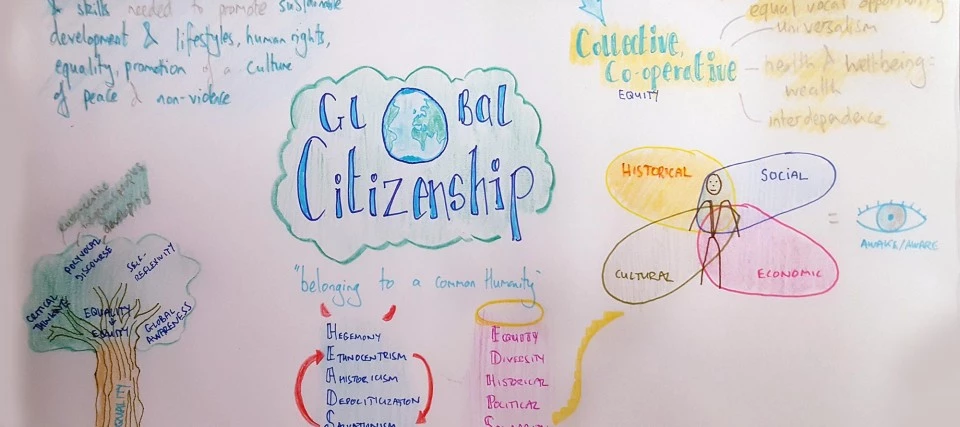 & skills needed to promote sustainable
development & lifestyles, human rights,
equality, promotion of a culture
of peace & non-violence
GLOBAL
Citizenship
"belonging to a common Humanity"
Collective,
Co-operative
EQUITY
equal vocal opportunity
universalism
health & wellbeing:
wealth
interdependence
HISTORICAL
SOCIAL
CULTURAL
ECONOMIC
=
AWAKE/AWARE
developing
POLYVOCAL
DISCOURSE
SELF-
REFLEXIVITY
CRITICAL
THINKING
EQUALITY
&
EQUITY
GLOBAL
AWARENESS
EQUALITY
HEGEMONY
ETHNOCENTRISM
AHISTORICISM
DEPOLITICIZATION
SALVATIONISM
EQUITY
DIVERSITY
HISTORICAL
POLITICAL